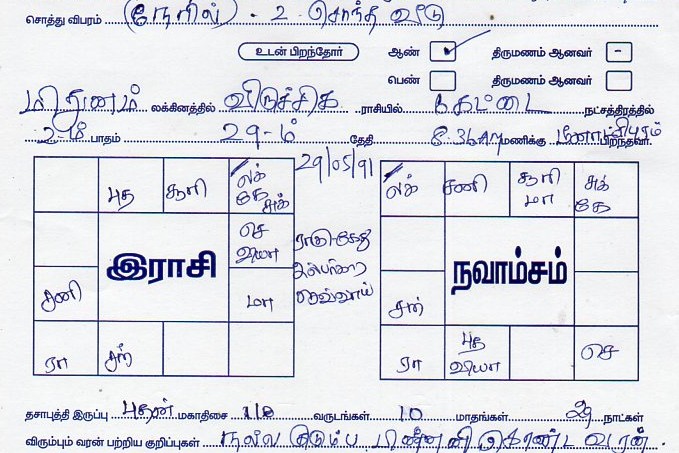 சொத்து விபரம் (நேரில்) - 2 சொந்த வீடு
உடன் பிறந்தோர் ஆண் திருமணம் ஆனவர் -
பெண் திருமணம் ஆனவர்
மிதுனம் லக்கினத்தில் விருச்சிக ராசியில் கேட்டை நட்சத்திரத்தில்
2-ம் பாதம் 29-ம் தேதி 8.36 AM மணிக்கு பிறந்தவர்.
29/05/91
புத சூரி லக் கே சுக்
செ வியா
இராசி
சனி மா
ரா சந்
ராகு-கேது
செவ்வாய்
லக் சனி சூரி மா சுக் கே
நவாம்சம்
சந்
ரா புத வியா செ
தசாபுத்தி இருப்பு புதன் மகாதிசை வருடங்கள் 10 மாதங்கள் நாட்கள்
விரும்பும் வரன் பற்றிய குறிப்புகள் நல்ல குடும்ப பின்னனி கொண்ட வரன்.